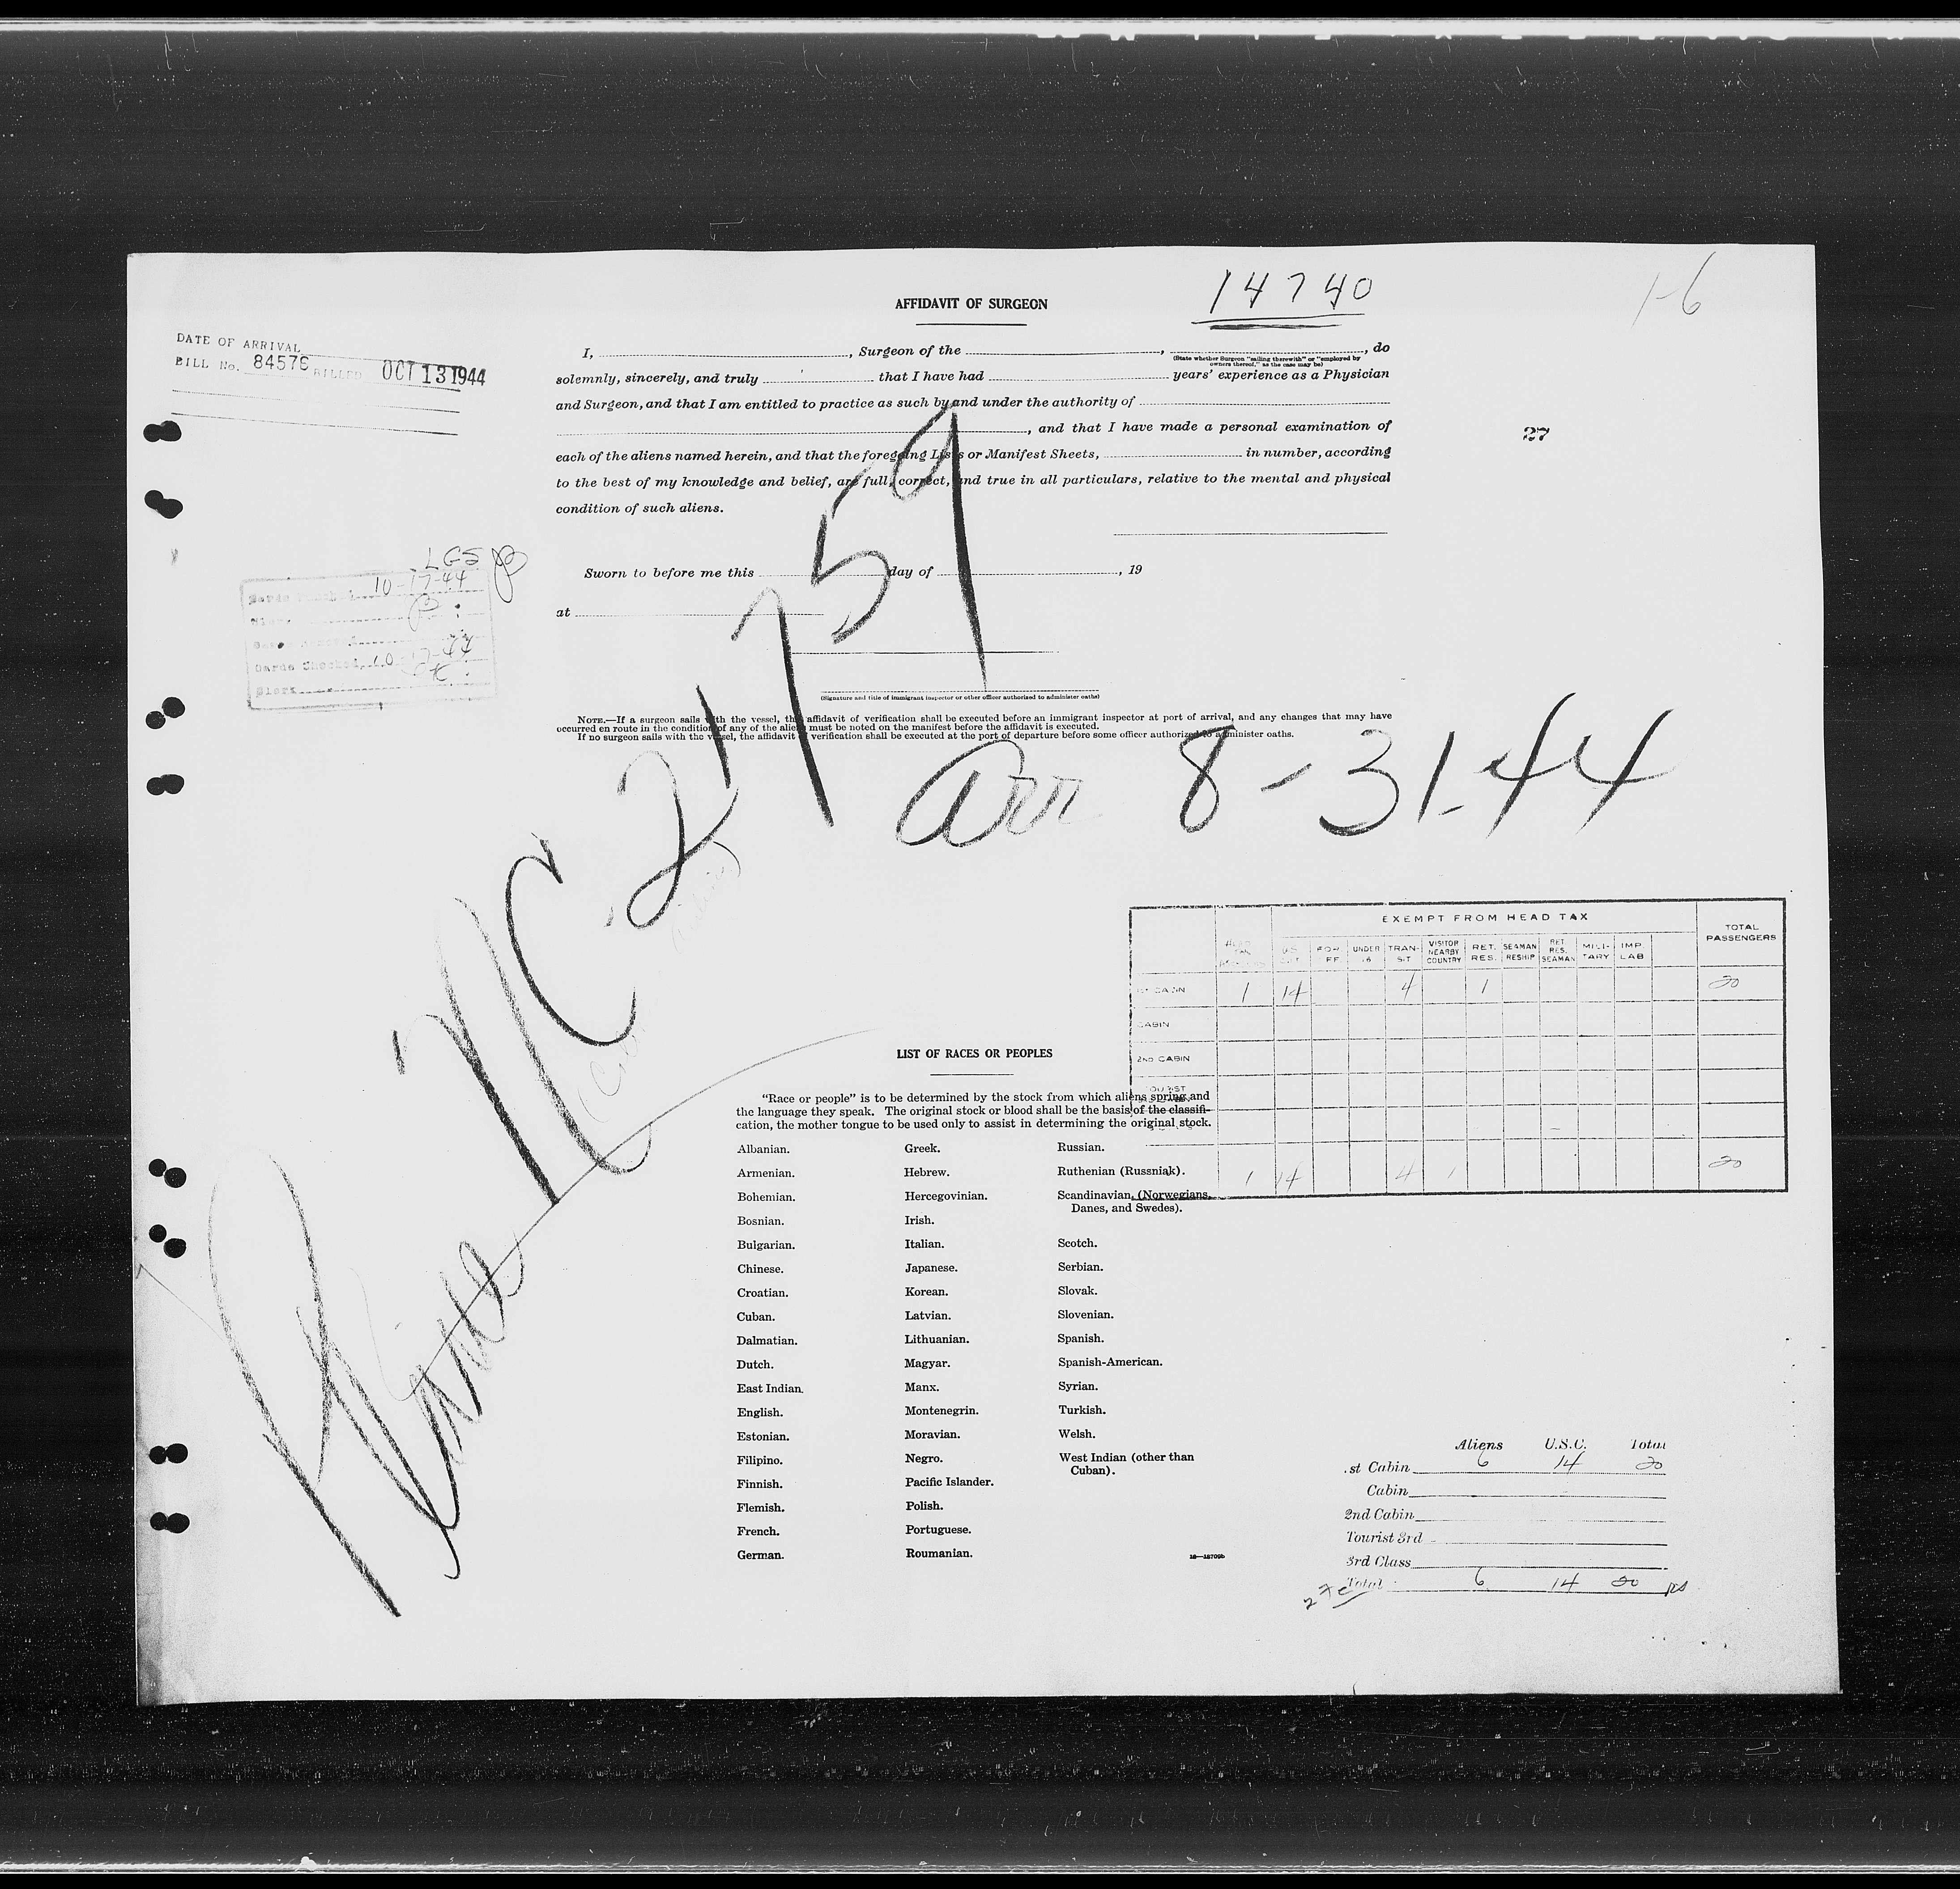 AFFIDAVIT OF SURGEON
14740
1-6
DATE OF ARRIVAL
BILL No. 84576 BILLED OCT 13 1944
I, , Surgeon of the , , do
(State whether Surgeon "sailing therewith" or "employed by
owners thereof," as the case may be)
solemnly, sincerely, and truly that I have had years' experience as a Physician
and Surgeon, and that I am entitled to practice as such by and under the authority of
, and that I have made a personal examination of
27
each of the aliens named herein, and that the foregoing Lists or Manifest Sheets, in number, according
to the best of my knowledge and belief, are full, correct, and true in all particulars, relative to the mental and physical
condition of such aliens.
LGS
10-17-44
Cards Checked 10-17-44
Clerk
Sworn to before me this day of , 19
at
(Signature and title of immigrant inspector or other officer authorized to administer oaths)
NOTE.—If a surgeon sails with the vessel, the affidavit of verification shall be executed before an immigrant inspector at port of arrival, and any changes that may have
occurred en route in the condition of any of the aliens must be noted on the manifest before the affidavit is executed.
If no surgeon sails with the vessel, the affidavit of verification shall be executed at the port of departure before some officer authorized to administer oaths.
Plane NC-21759
Arr 8-31-44
EXEMPT FROM HEAD TAX
TOTAL PASSENGERS
UNDER 16 TRANSIT VISITOR NEARBY COUNTRY RET. RES. SEAMAN RESHIP RET. RES. SEAMAN MILITARY IMP LAB
1st CABIN 1 14 4 1 20
CABIN
2ND CABIN
TOURIST
1 14 4 1 20
LIST OF RACES OR PEOPLES
"Race or people" is to be determined by the stock from which aliens spring and
the language they speak. The original stock or blood shall be the basis of the classifi-
cation, the mother tongue to be used only to assist in determining the original stock.
Albanian.
Armenian.
Bohemian.
Bosnian.
Bulgarian.
Chinese.
Croatian.
Cuban.
Dalmatian.
Dutch.
East Indian.
English.
Estonian.
Filipino.
Finnish.
Flemish.
French.
German.
Greek.
Hebrew.
Hercegovinian.
Irish.
Italian.
Japanese.
Korean.
Latvian.
Lithuanian.
Magyar.
Manx.
Montenegrin.
Moravian.
Negro.
Pacific Islander.
Polish.
Portuguese.
Roumanian.
Russian.
Ruthenian (Russniak).
Scandinavian (Norwegians,
Danes, and Swedes).
Scotch.
Serbian.
Slovak.
Slovenian.
Spanish.
Spanish-American.
Syrian.
Turkish.
Welsh.
West Indian (other than
Cuban).
16—18709b
Aliens U.S.C. Total
1st Cabin 6 14 20
Cabin
2nd Cabin
Tourist 3rd
3rd Class
Total 6 14 20